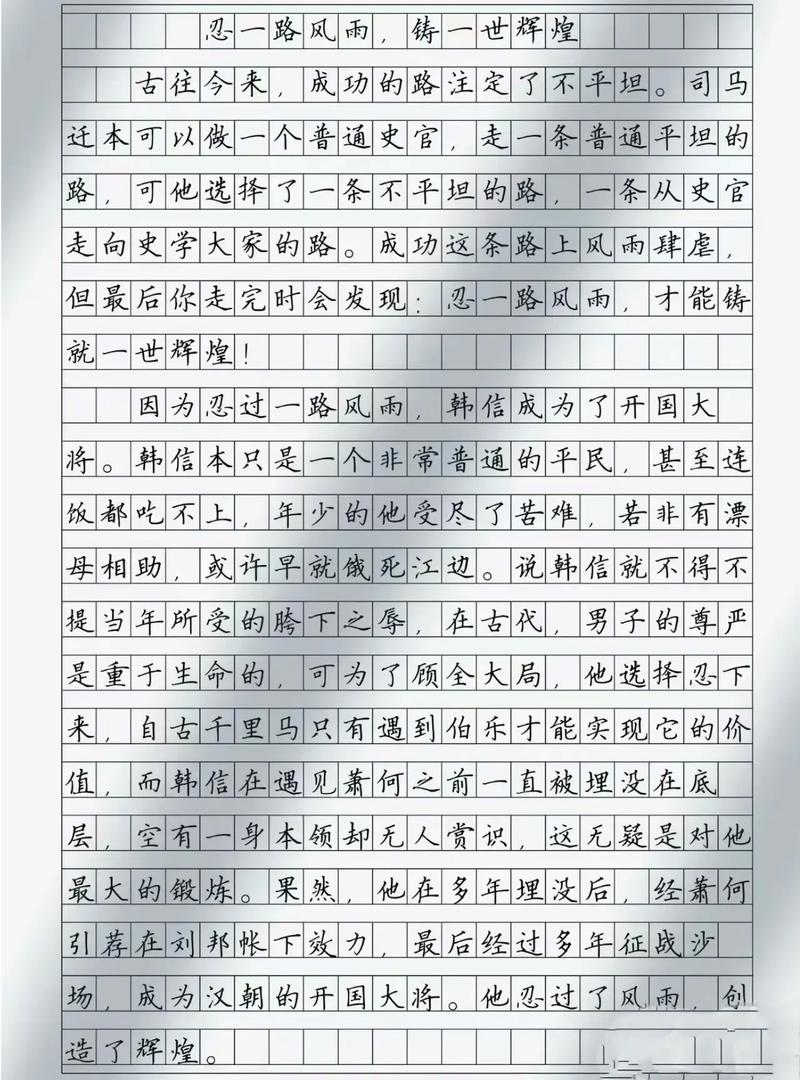 忍一路风雨，铸一世辉煌
古往今来，成功的路注定了不平坦。司马
迁本可以做一个普通史官，走一条普通平坦的
路，可他选择了一条不平坦的路，一条从史官
走向史学大家的路。成功这条路上风雨肆虐，
但最后你走完时会发现：忍一路风雨，才能铸
就一世辉煌！
因为忍过一路风雨，韩信成为了开国大
将。韩信本只是一个非常普通的平民，甚至连
饭都吃不上，年少的他受尽了苦难，若非有漂
母相助，或许早就饿死江边。说韩信就不得不
提当年所受的胯下之辱，在古代，男子的尊严
是重于生命的，可为了顾全大局，他选择忍下
来，自古千里马只有遇到伯乐才能实现它的价
值，而韩信在遇见萧何之前一直被埋没在底
层，空有一身本领却无人赏识，这无疑是对他
最大的锻炼。果然，他在多年埋没后，经萧何
引荐在刘邦帐下效力，最后经过多年征战沙
场，成为汉朝的开国大将。他忍过了风雨，创
造了辉煌。